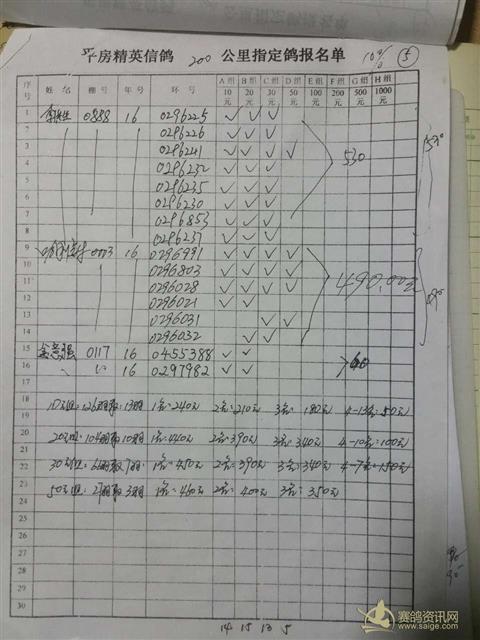 平房精英信鸽 200 公里指定鸽报名单 10% ⑤
序号 姓名 棚号 年号 环号 A组10元 B组20元 C组30元 D组50元 E组100元 F组200元 G组500元 H组1000元
1 0888 16 0296225 ✓ ✓ ✓
2 0296226 ✓ ✓ ✓
3 0296241 ✓ ✓ ✓ ✓ 530
4 0296232 ✓ ✓ ✓
5 0296235 ✓ ✓ ✓
6 0296230 ✓ ✓ ✓
7 0296853 ✓ ✓ ✓
8 0296237 ✓ ✓ ✓
9 0003 16 0296991 ✓ ✓ ✓ ✓
10 0296803 ✓ ✓ ✓ ✓
11 0296028 ✓ ✓ ✓ ✓ 490.00元
12 0296021 ✓ ✓
13 0296031 ✓ ✓
14 0296032 ✓ ✓ ✓
15 0117 16 0455388 ✓ ✓
16 16 0297982 ✓ ✓ 60
17
18 10元组:126羽取13羽 1名:240元 2名:210元 3名:180元 4-13名:50元
19
20 20元组:104羽取10羽 1名:440元 2名:390元 3名:340元 4-10名:100元
21
22 30元组: 取7羽 1名:450元 2名:390元 3名:340元 4-7名:150元
23 50元组:27羽取3羽 1名:460元 2名:400元 3名:350元
24
25
26
27
28
29
30
14 15 13 5
赛鸽资讯网
www.saige.com